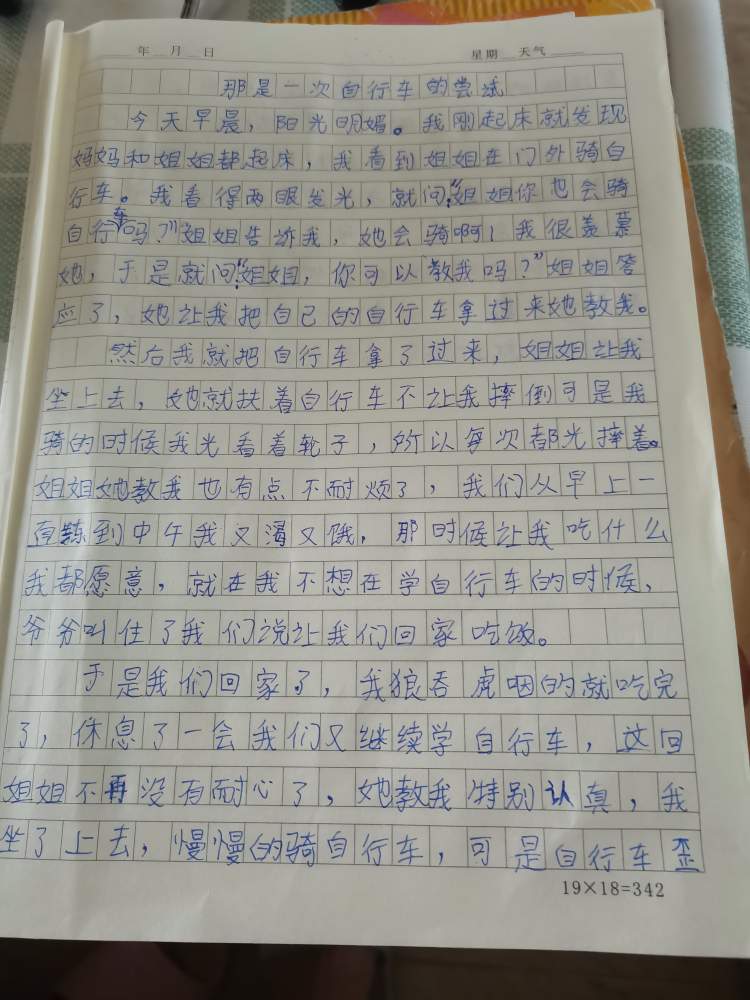 年 月 日 星期 天气
那是一次自行车的尝试
今天早晨，阳光明媚。我刚起床就发现
妈妈和姐姐都起床，我看到姐姐在门外骑自
行车。我看得两眼发光，就问：“姐姐你也会骑
自行车吗？”姐姐告诉我，她会骑啊！我很羡慕
她，于是就问：“姐姐，你可以教我吗？”姐姐答
应了，她让我把自己的自行车拿过来她教我。
然后我就把自行车拿了过来，姐姐让我
坐上去，她就扶着自行车不让我摔倒可是我
骑的时候我光看着轮子，所以每次都光摔着。
姐姐她教我也有点不耐烦了，我们从早上一
直练到中午我又渴又饿，那时候让我吃什么
我都愿意，就在我不想在学自行车的时候，
爷爷叫住了我们说让我们回家吃饭。
于是我们回家了，我狼吞虎咽的就吃完
了，休息了一会我们又继续学自行车，这回
姐姐不再没有耐心了，她教我特别认真，我
坐了上去，慢慢的骑自行车，可是自行车歪
19×18=342